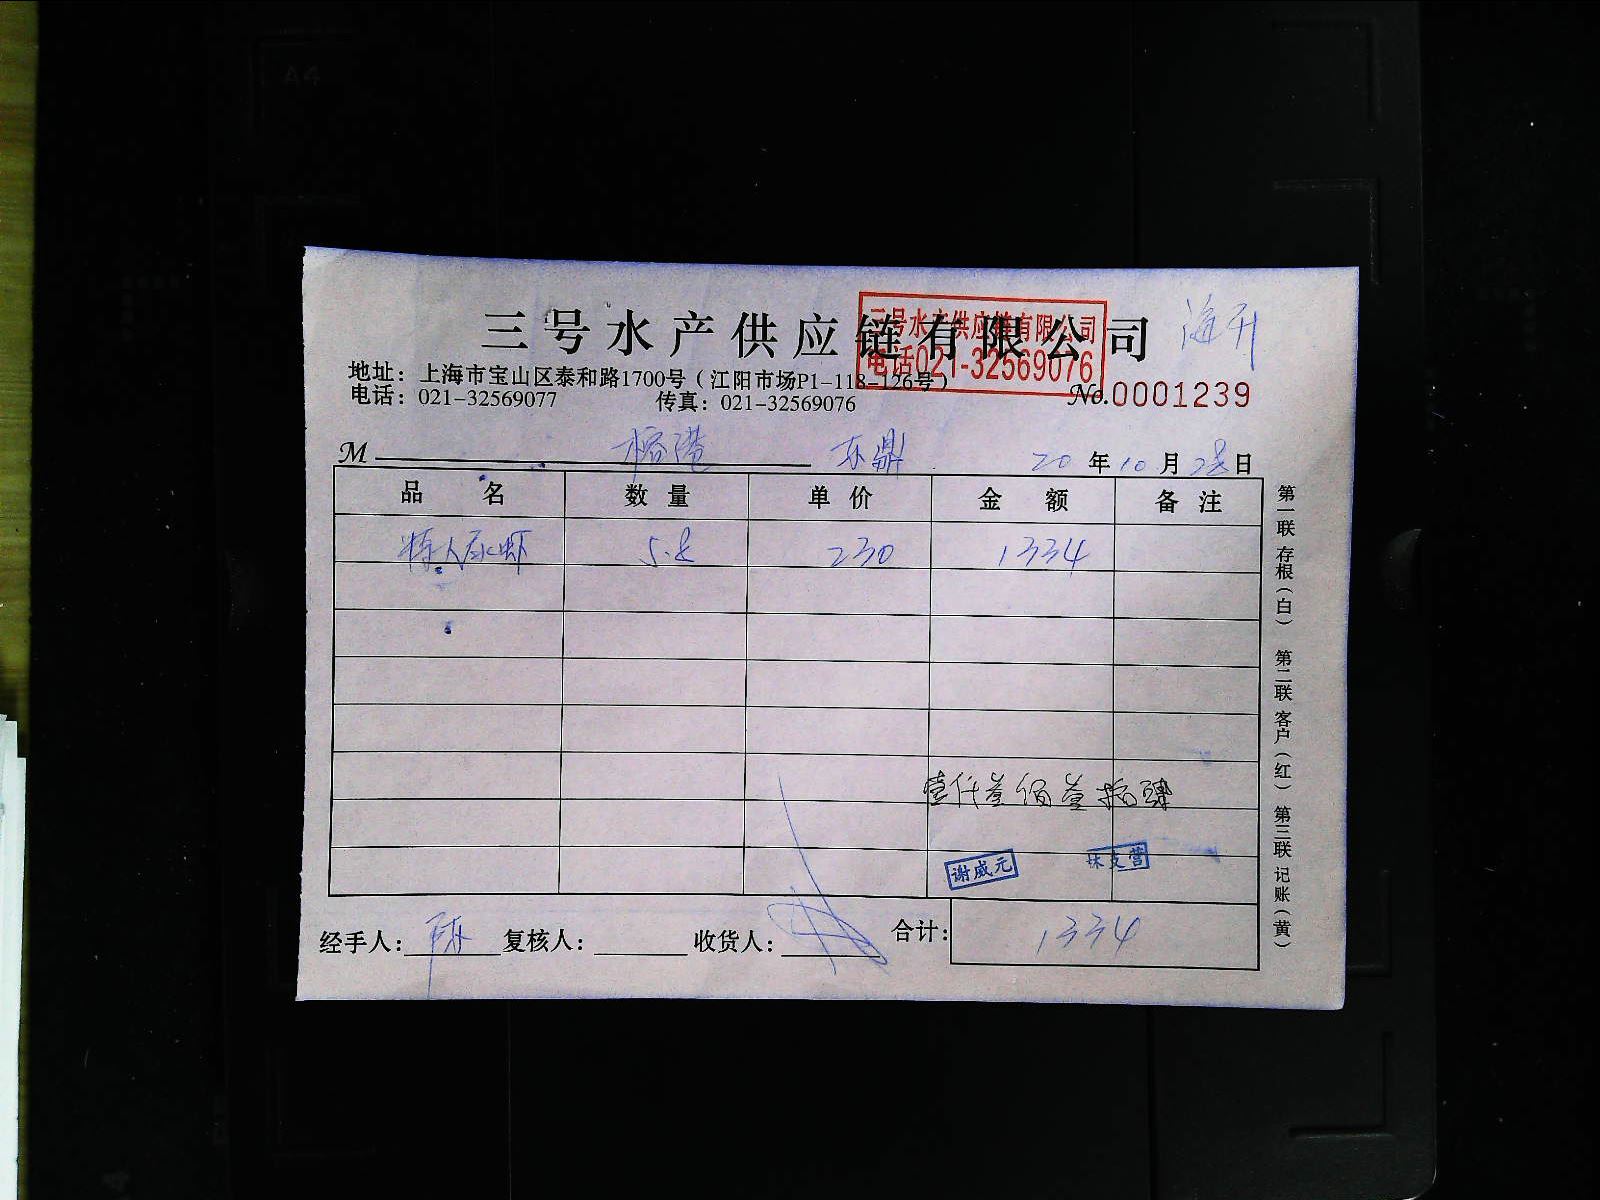 三号水产供应链有限公司
三号水产供应链有限公司
电话021-32569076
海升
地址：上海市宝山区泰和路1700号（江阳市场P1-118-126号）
电话：021-32569077 传真：021-32569076
No.0001239
M 榕港 东鼎 20年10月28日
品名 数量 单价 金额 备注
特人尿虾 5.8 230 1334
壹仟叁佰叁拾肆
谢威元
经手人：陈 复核人： 收货人： 合计：1334
第一联 存根（白） 第二联 客户（红） 第三联 记账（黄）
A4